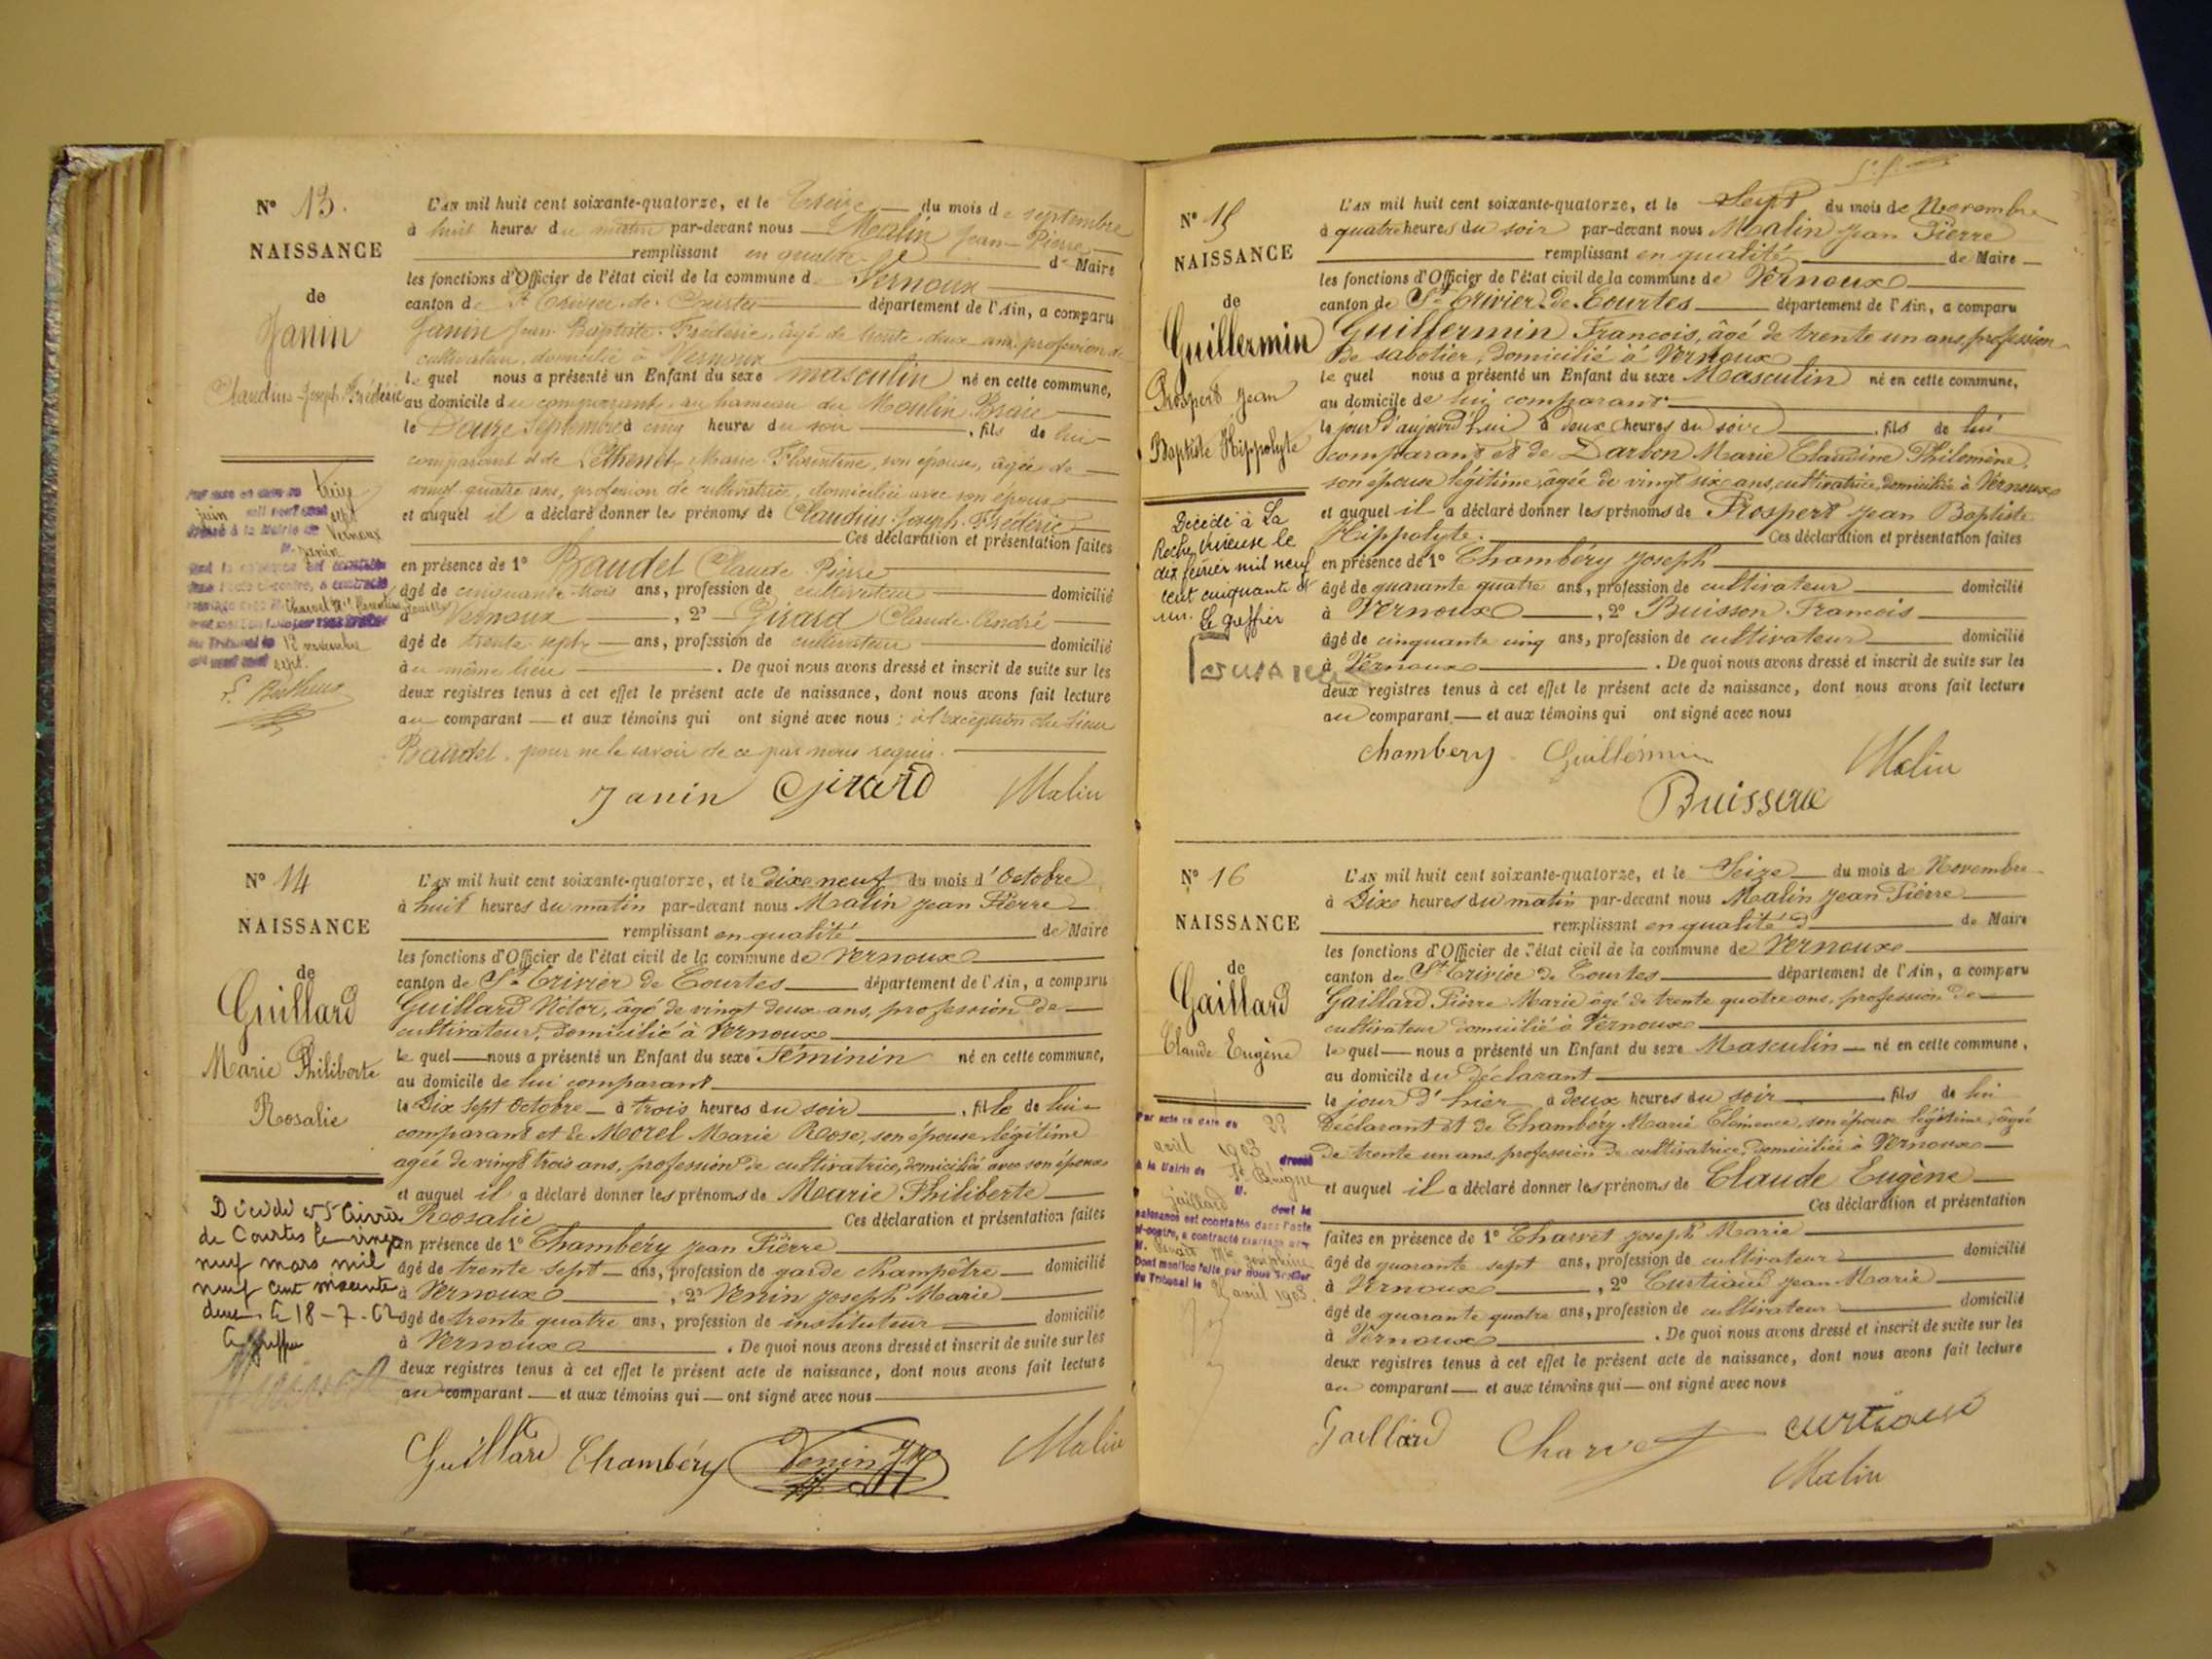 N° 13.
NAISSANCE
de
Janin
Claudius Joseph Frédéric
L'AN mil huit cent soixante-quatorze, et le treize du mois de septembre
à huit heures du matin par-devant nous Malin Jean Pierre
remplissant en qualité de Maire
les fonctions d'Officier de l'état civil de la commune d Vernoux
canton de St Trivier de Courtes département de l'Ain, a comparu
Janin Jean Baptiste Frédéric, âgé de trente deux ans, profession de
cultivateur, domicilié à Vernoux
le quel nous a présenté un Enfant du sexe masculin né en cette commune,
au domicile du comparant, au hameau du Moulin
le Douze Septembre à cinq heures du soir, fils de lui
comparant et de Marie Florentine, son épouse, âgée de
vingt quatre ans, profession de cultivatrice, domiciliée avec son époux
et auquel il a déclaré donner les prénoms de Claudius Joseph Frédéric
Ces déclaration et présentation faites
en présence de 1° Baudet Claude Pierre
âgé de cinquante trois ans, profession de cultivateur domicilié
à Vernoux, 2° Girard Claude André
âgé de trente sept ans, profession de cultivateur domicilié
au même lieu. De quoi nous avons dressé et inscrit de suite sur les
deux registres tenus à cet effet le présent acte de naissance, dont nous avons fait lecture
au comparant et aux témoins qui ont signé avec nous : à l'exception du sieur
Baudet, pour ne le savoir de ce par nous requis.
Janin Girard Malin
treize
juin mil neuf cent sept
à la Mairie de Vernoux
M. Janin
12 novembre
mil neuf cent sept.
N° 14
NAISSANCE
de
Guillard
Marie Philiberte
Rosalie
L'AN mil huit cent soixante-quatorze, et le dixe neuf du mois d'Octobre
à huit heures du matin par-devant nous Malin Jean Pierre
remplissant en qualité de Maire
les fonctions d'Officier de l'état civil de la commune de Vernoux
canton de St Trivier de Courtes département de l'Ain, a comparu
Guillard Victor, âgé de vingt deux ans, profession de
cultivateur, domicilié à Vernoux
le quel nous a présenté un Enfant du sexe Féminin né en cette commune,
au domicile de lui comparant
le Dix sept Octobre à trois heures du soir, fille de lui
comparant et de Morel Marie Rose, son épouse légitime
agée de vingt trois ans, profession de cultivatrice, domiciliée avec son époux
et auquel il a déclaré donner les prénoms de Marie Philiberte
Rosalie Ces déclaration et présentation faites
en présence de 1° Chambéry Jean Pierre
âgé de trente sept ans, profession de garde champêtre domicilié
à Vernoux, 2° Venin Joseph Marie
âgé de trente quatre ans, profession de instituteur domicilié
à Vernoux. De quoi nous avons dressé et inscrit de suite sur les
deux registres tenus à cet effet le présent acte de naissance, dont nous avons fait lecture
au comparant et aux témoins qui ont signé avec nous
Guillard Chambéry Venin Malin
Décédé à St Trivier
de Courtes le vingt
neuf mars mil
neuf cent soixante
deux le 18-7-62
Le greffier
N° 15
NAISSANCE
de
Guillermin
Prospert Jean
Baptiste Hippolyte
L'AN mil huit cent soixante-quatorze, et le Sept du mois de Novembre
à quatre heures du soir par-devant nous Malin Jean Pierre
remplissant en qualité de Maire
les fonctions d'Officier de l'état civil de la commune de Vernoux
canton de St Trivier de Courtes département de l'Ain, a comparu
Guillermin François, âgé de trente un ans, profession
de sabotier, domicilié à Vernoux
le quel nous a présenté un Enfant du sexe Masculin né en cette commune,
au domicile de lui comparant
le jour d'aujourd'hui à deux heures du soir, fils de lui
comparant et de Darbon Marie Claudine Philomène,
son épouse légitime, âgée de vingt six ans, cultivatrice, domiciliée à Vernoux
et auquel il a déclaré donner les prénoms de Prospert Jean Baptiste
Hippolyte. Ces déclaration et présentation faites
en présence de 1° Chambéry Joseph
âgé de quarante quatre ans, profession de cultivateur domicilié
à Vernoux, 2° Buisson François
âgé de cinquante cinq ans, profession de cultivateur domicilié
à Vernoux. De quoi nous avons dressé et inscrit de suite sur les
deux registres tenus à cet effet le présent acte de naissance, dont nous avons fait lecture
au comparant et aux témoins qui ont signé avec nous
Chambery Guillermin Malin
Décédé à La
Roche Vineuse le
dix février mil neuf
cent cinquante et
un. Le Greffier
N° 16
NAISSANCE
de
Gaillard
Claude Eugène
L'AN mil huit cent soixante-quatorze, et le Seize du mois de Novembre
à Dixe heures du matin par-devant nous Malin Jean Pierre
remplissant en qualité de Maire
les fonctions d'Officier de l'état civil de la commune de Vernoux
canton de St Trivier de Courtes département de l'Ain, a comparu
Gaillard Pierre Marie âgé de trente quatre ans, profession de
cultivateur domicilié à Vernoux
le quel nous a présenté un Enfant du sexe Masculin né en cette commune,
au domicile du déclarant
le jour d'hier à deux heures du soir, fils de lui
Déclarant et de Chambéry Marie Clémence, son épouse légitime, âgée
de trente un ans, profession de cultivatrice, domiciliée à Vernoux
et auquel il a déclaré donner les prénoms de Claude Eugène
Ces déclaration et présentation
faites en présence de 1° Charvet Joseph Marie
âgé de quarante sept ans, profession de cultivateur domicilié
à Vernoux, 2° Curtiaud Jean Marie
âgé de quarante quatre ans, profession de cultivateur domicilié
à Vernoux. De quoi nous avons dressé et inscrit de suite sur les
deux registres tenus à cet effet le présent acte de naissance, dont nous avons fait lecture
au comparant et aux témoins qui ont signé avec nous
Gaillard Charvet Curtiaud
Malin
Par acte en date du 22
avril 1903 dressé
à la Mairie de
M. Gaillard dont la
naissance est constatée dans l'acte
ci-contre, a contracté mariage avec
M. Joséphine
Dont mention faite par nous Greffier
du Tribunal le avril 1903.